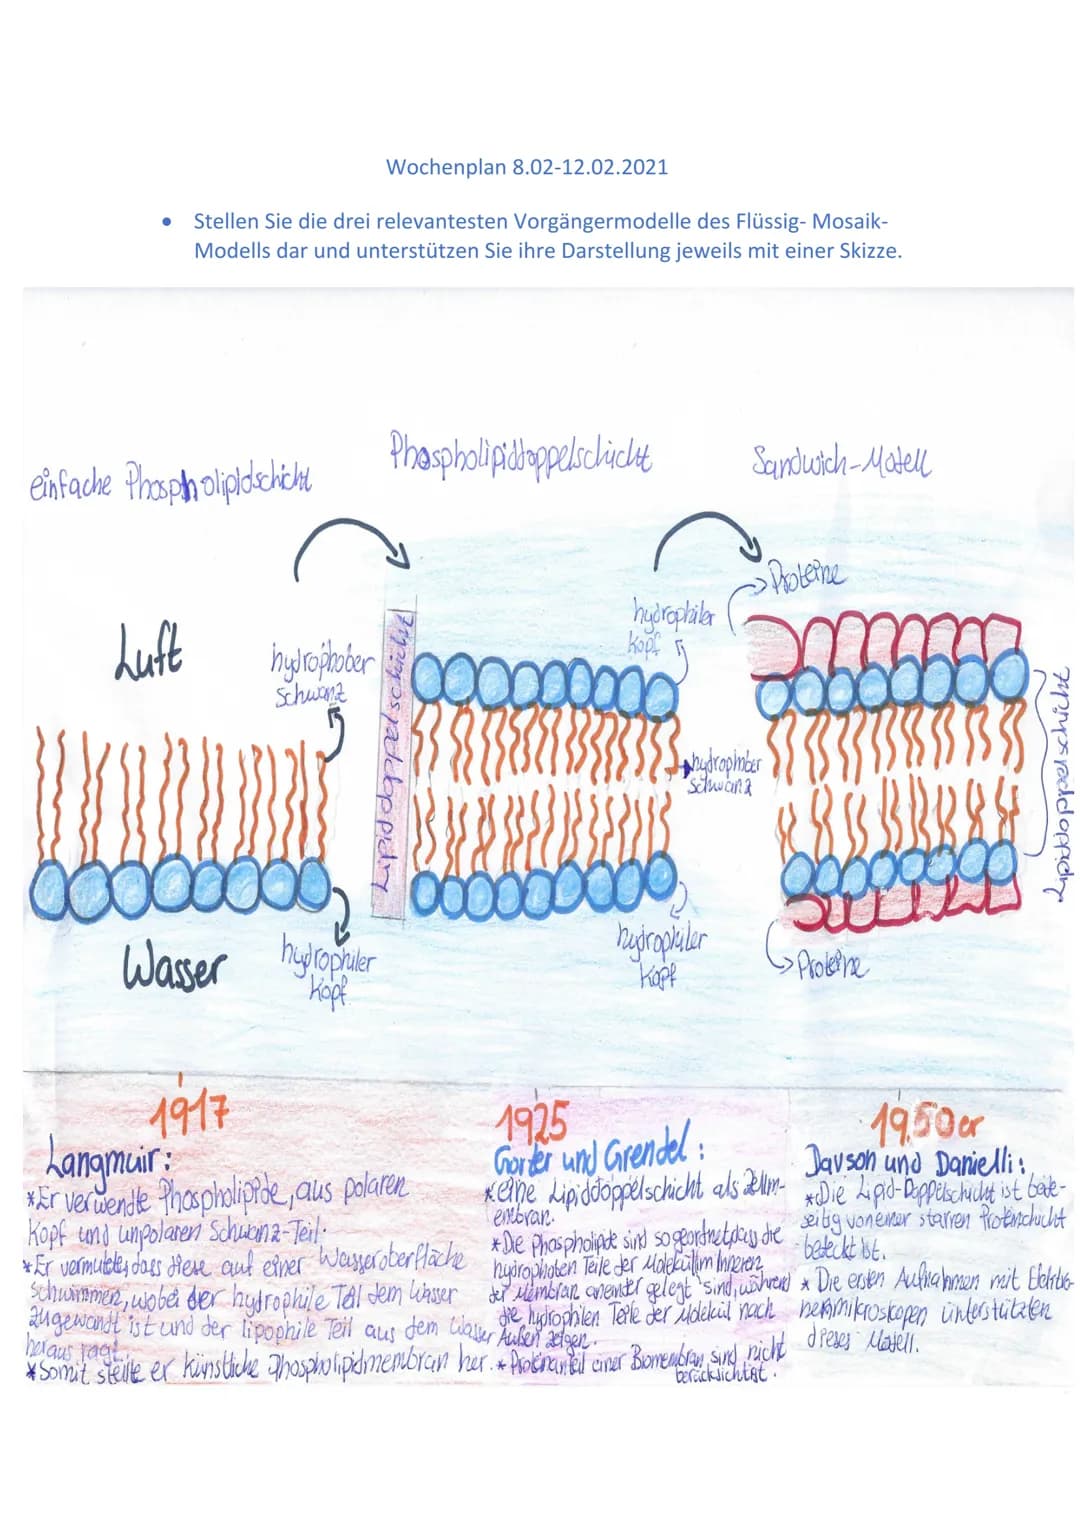 Wochenplan 8.02-12.02.2021
• Stellen Sie die drei relevantesten Vorgängermodelle des Flüssig- Mosaik-
Modells dar und unterstützen Sie ihre Darstellung jeweils mit einer Skizze.
einfache Phospholipidschicht
Phospholipiddoppelschicht
Sandwich-Modell
Luft
hydrophober
Schwanz
Wasser
hydrophiler
Kopf
Lipiddoppelschicht
hydrophiler
Kopf
hydrophober
Schwanz
hydrophiler
Kopf
Proteine
Lipiddoppelschicht
Proteine
1917
Langmuir:
*Er verwendte Phospholipide, aus polaren
Kopf und unpolaren Schwanz-Teil.
*Er vermutete, dass diese auf einer Wasseroberfläche
schwimmen, wobei der hydrophile Teil dem Wasser
zugewandt ist und der lipophile Teil aus dem Wasser
heraus ragt.
*Somit stellte er künstliche Phospholipidmembran her.
1925
Gorter und Grendel:
*eine Lipiddoppelschicht als Zellm-
embran.
*Die Phospholipide sind so geordnet, dass die
hydrophoben Teile der Moleküle im Inneren
der Membran aneinder gelegt sind, während
die hydrophilen Teile der Molekül nach
Außen zeigen.
*Proteinanteil einer Biomembran sind nicht
berücksichtigt.
1950er
Davson und Danielli:
*Die Lipid-Doppelschicht ist beid-
seitig von einer starren Proteinschicht
bedeckt ist.
*Die ersten Aufnahmen mit Elektro-
nenmikroskopen unterstützten
dieses Modell.